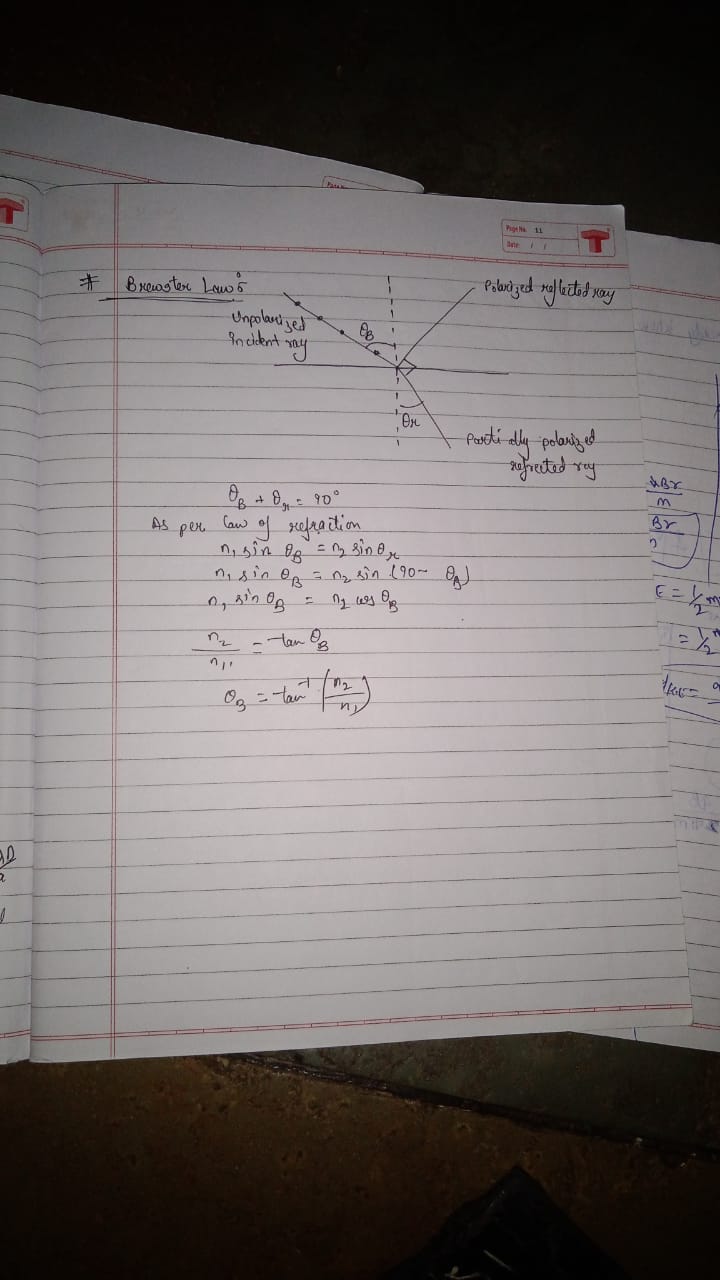 Page No. 11
Date: / /
# Brewster Law:
Polarized reflected ray
Unpolarized
Incident ray
θB
θr
Partially polarized
refrected ray
θB + θr = 90°
As per law of refraction
n₁ sin θB = n₂ sin θr
n₁ sin θB = n₂ sin (90 - θB)
n₁ sin θB = n₂ cos θB
n₂/n₁ = tan θB
θB = tan⁻¹ (n₂/n₁)
Br
m
Br
E = 1/2 m
= 1/2